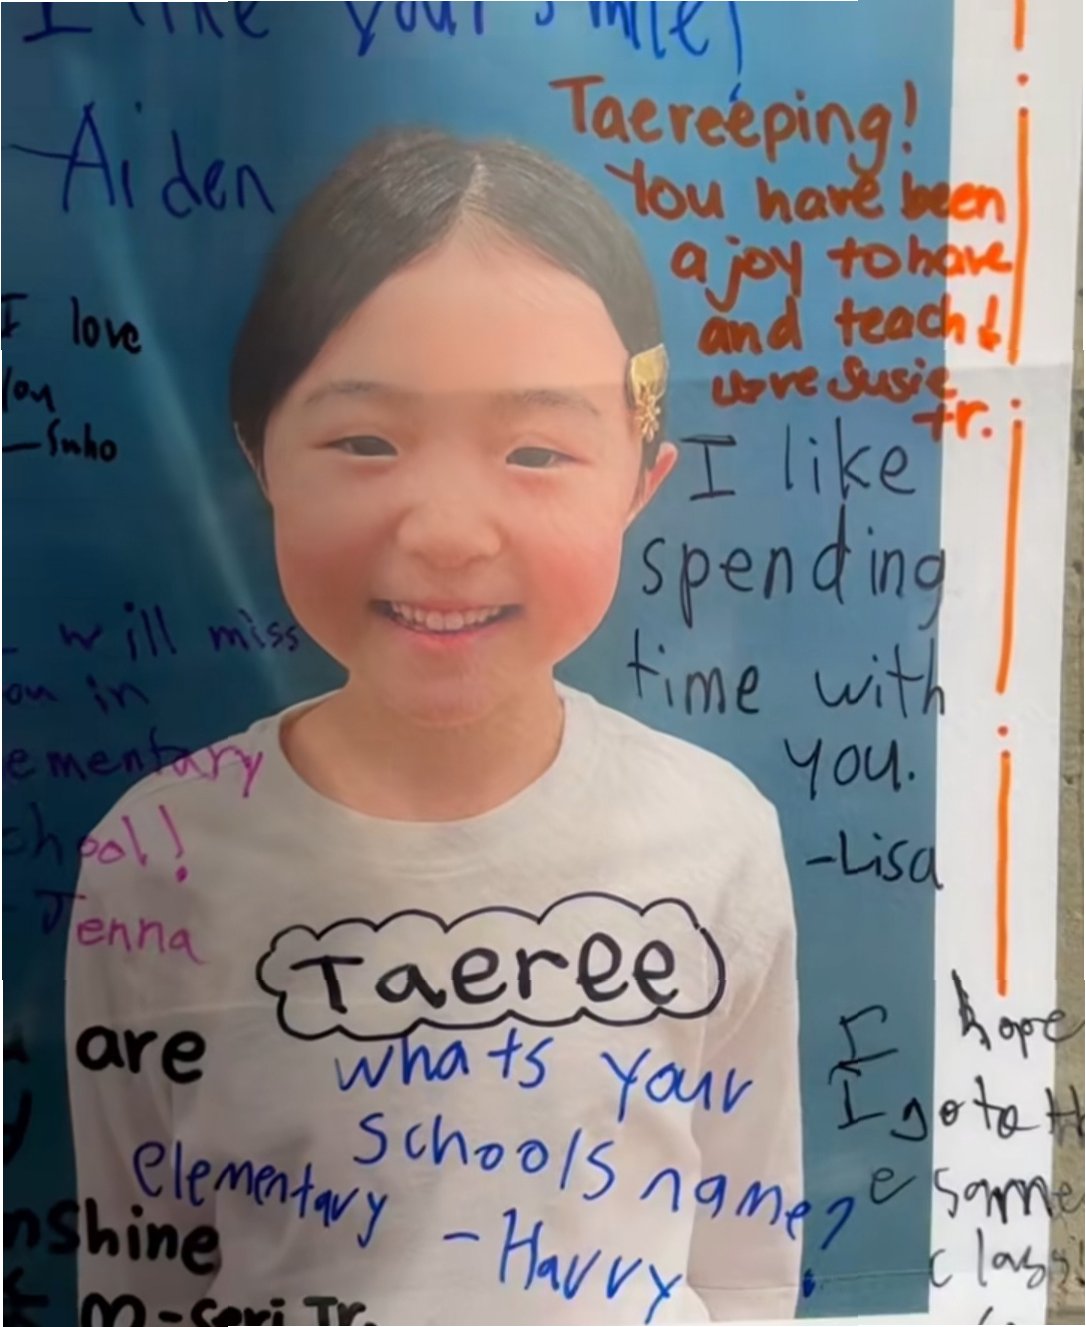 I like your smile!
Aiden
Taereeping!
You have been
a joy to have
and teach!
Love Susie
tr.
I love
you
-Suho
I like
spending
time with
you.
-Lisa
will miss
in
school!
Jenna
Taeree
whats your
schools name?
elementary
-Harry
are
-Seri Tr.
I hope
I go to
same
class